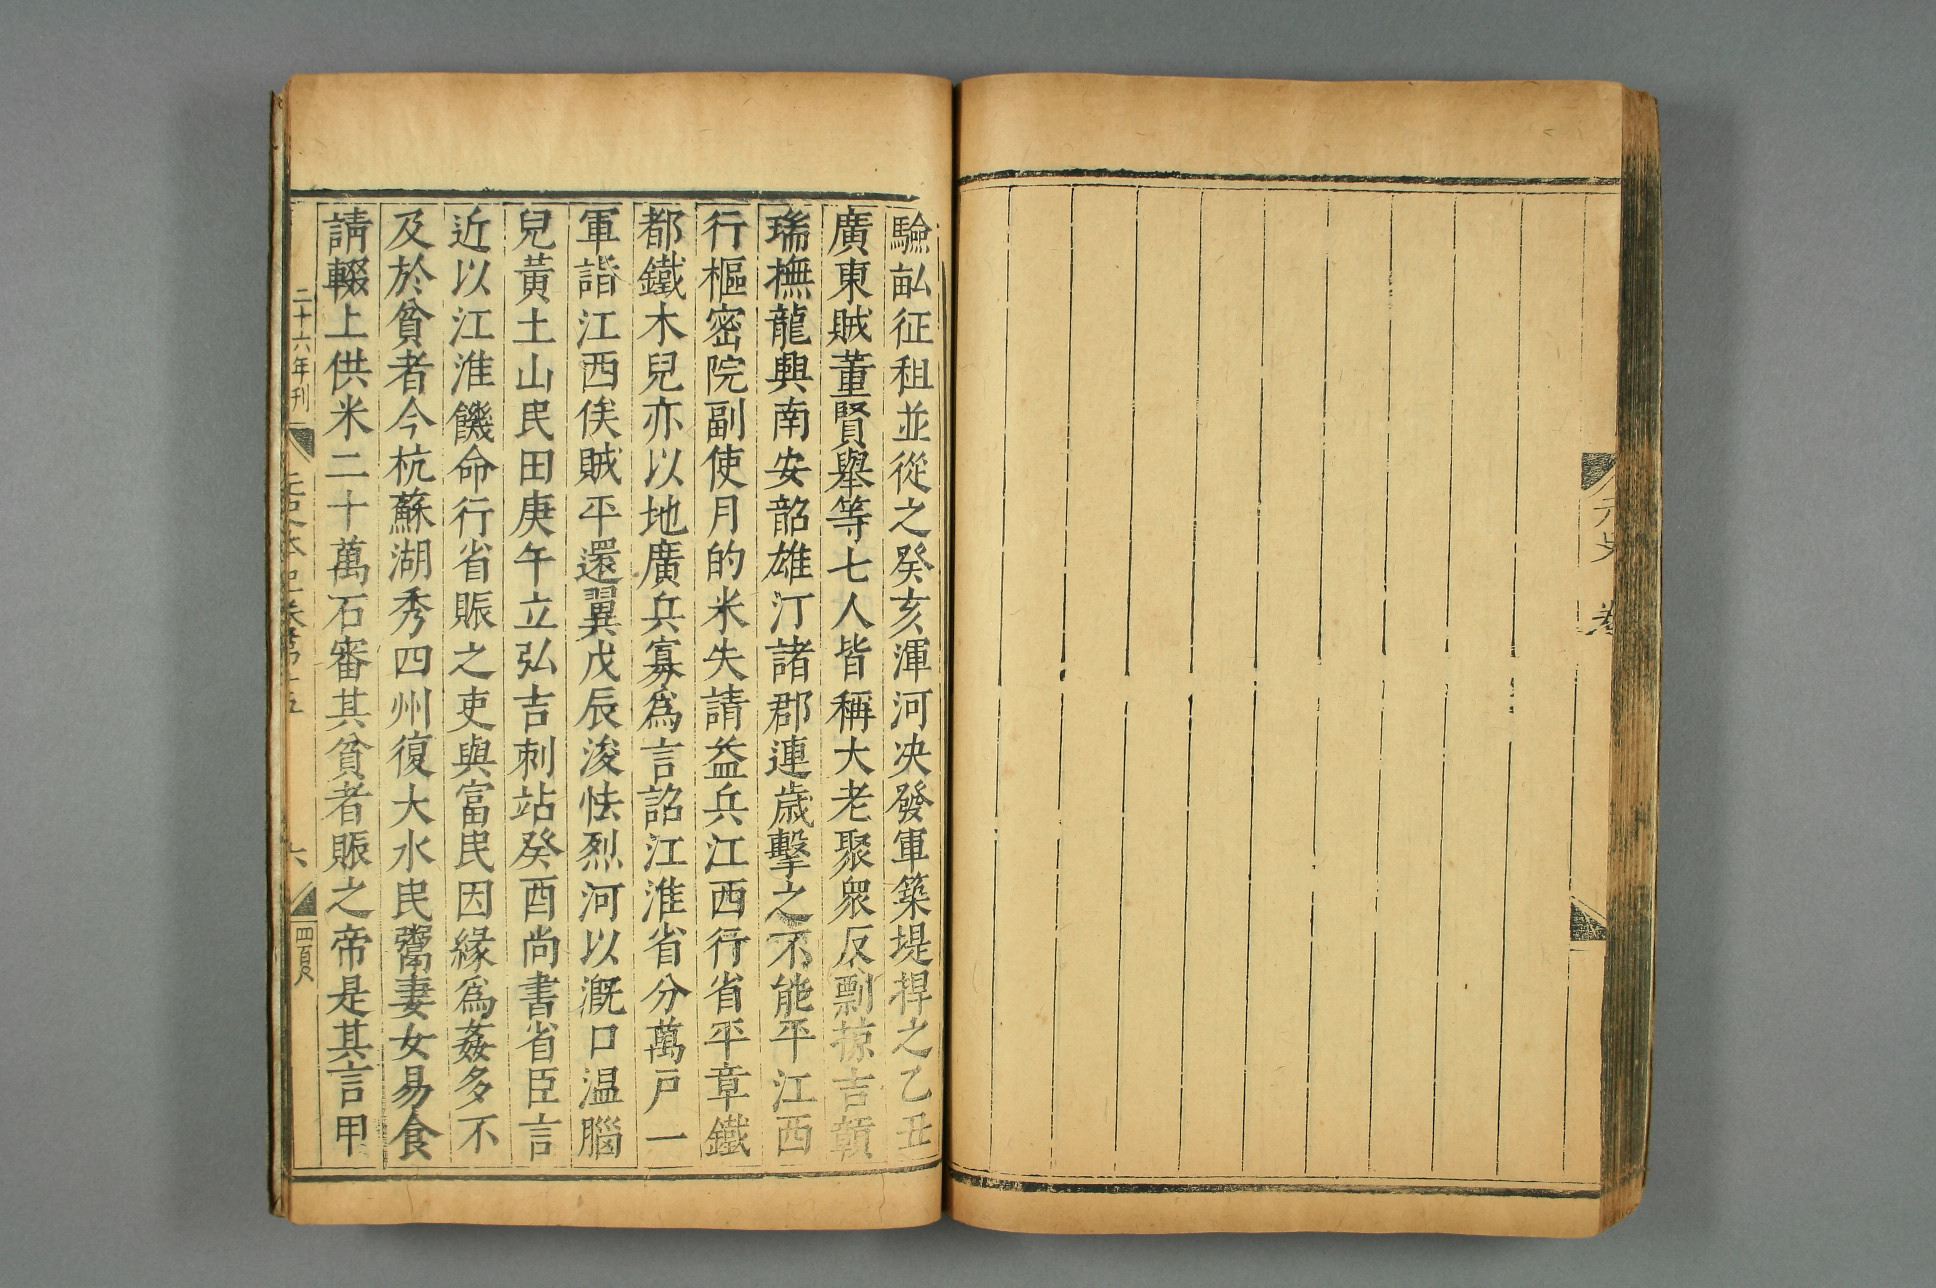 元史 卷
驗畝征租並從之癸亥渾河决發軍築堤捍之乙丑
廣東賊董賢舉等七人皆稱大老聚眾反剽掠吉贛
瑞撫龍興南安韶雄汀諸郡連歲擊之不能平江西
行樞密院副使月的米失請益兵江西行省平章鐵
都鐵木兒亦以地廣兵寡爲言詔江淮省分萬戶一
軍詣江西俟賊平還翼戊辰浚怯烈河以溉口温腦
兒黃土山民田庚午立弘吉刺站癸酉尚書省臣言
近以江淮饑命行省賑之吏與富民因緣爲姦多不
及於貧者今杭蘇湖秀四州復大水民鬻妻女易食
請輟上供米二十萬石審其貧者賑之帝是其言甲
二十六年刊 元史本紀卷第十五 六